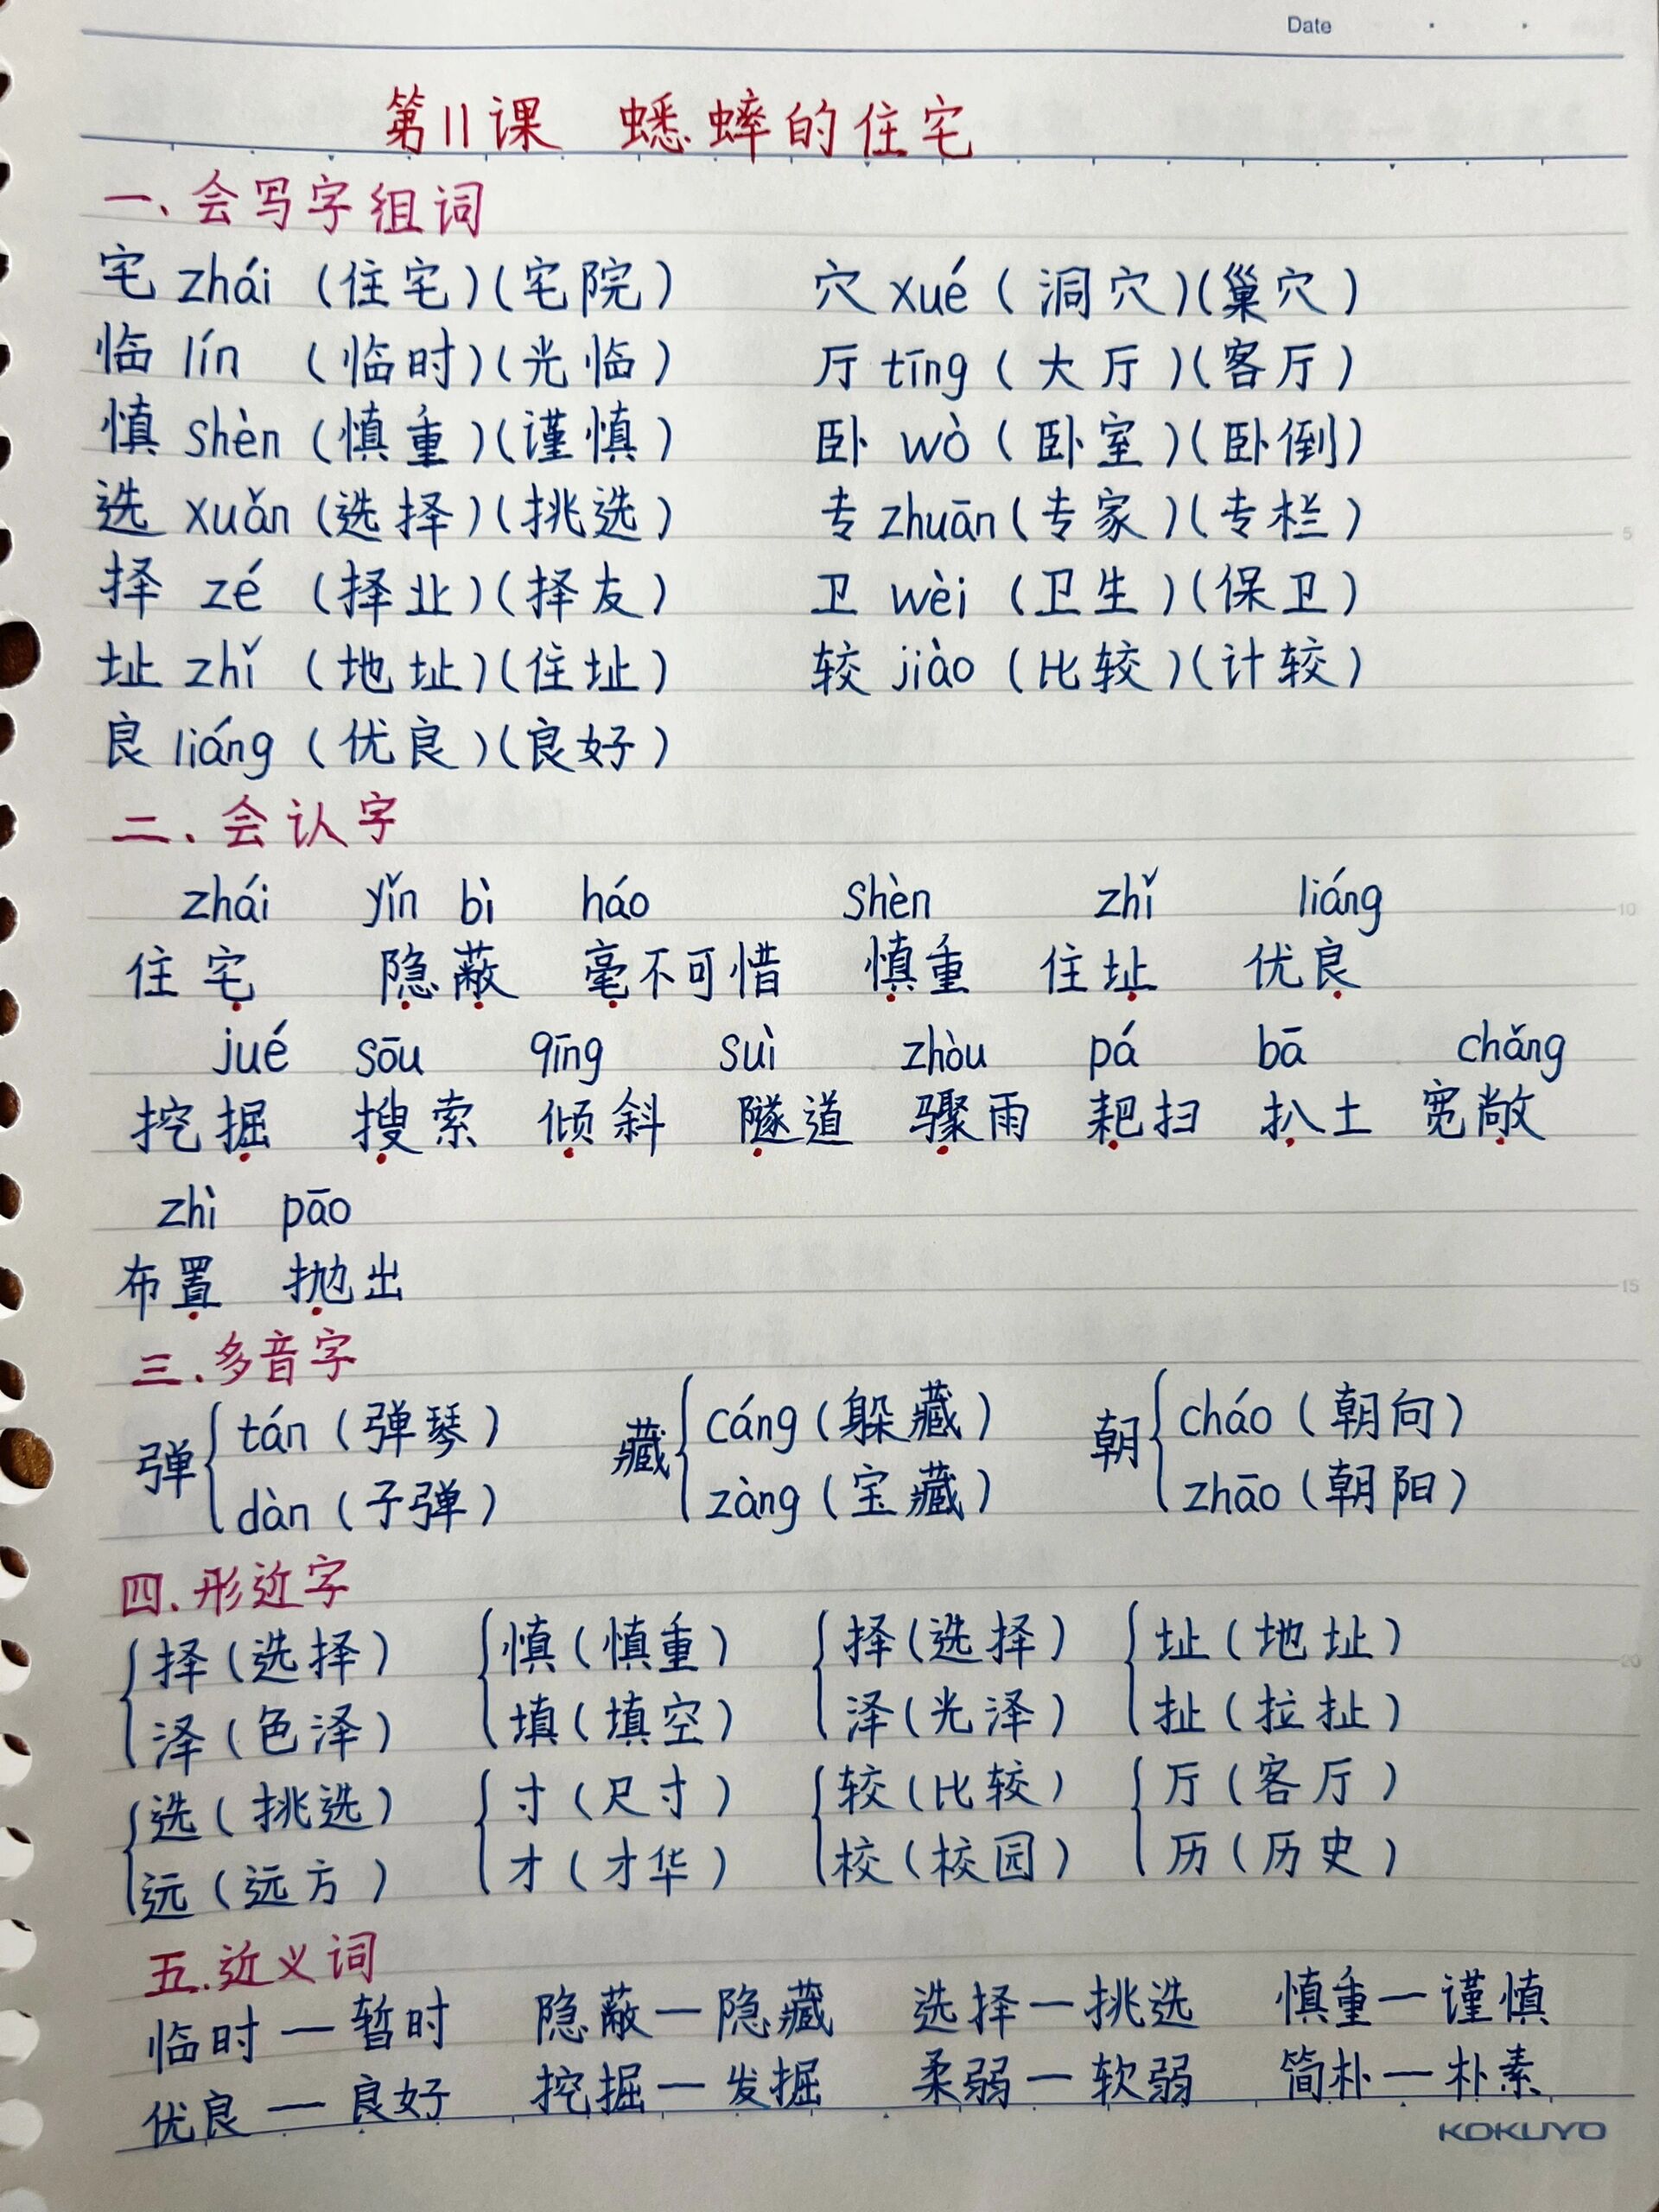 Date
第11课 蟋蟀的住宅
一、会写字组词
宅 zhái (住宅)(宅院) 穴 xué (洞穴)(巢穴)
临 lín (临时)(光临) 厅 tīng (大厅)(客厅)
慎 shèn (慎重)(谨慎) 卧 wò (卧室)(卧倒)
选 xuǎn (选择)(挑选) 专 zhuān (专家)(专栏)
5
择 zé (择业)(择友) 卫 wèi (卫生)(保卫)
址 zhǐ (地址)(住址) 较 jiào (比较)(计较)
良 liáng (优良)(良好)
二、会认字
zhái yǐn bì háo shèn zhǐ liáng
10
住宅 隐蔽 毫不可惜 慎重 住址 优良
jué sōu qīng suì zhòu pá bā chǎng
挖掘 搜索 倾斜 隧道 骤雨 耙扫 扒土 宽敞
zhì pāo
布置 抛出
15
三.多音字
弹 { tán (弹琴) 藏 { cáng (躲藏) 朝 { cháo (朝向)
dàn (子弹) zàng (宝藏) zhāo (朝阳)
四.形近字
择(选择) 慎(慎重) 择(选择) 址(地址)
20
泽(色泽) 填(填空) 泽(光泽) 扯(拉扯)
选(挑选) 寸(尺寸) 较(比较) 厅(客厅)
远(远方) 才(才华) 校(校园) 历(历史)
五.近义词
临时—暂时 隐蔽—隐藏 选择—挑选 慎重—谨慎
优良—良好 挖掘—发掘 柔弱—软弱 简朴—朴素
KOKUYO